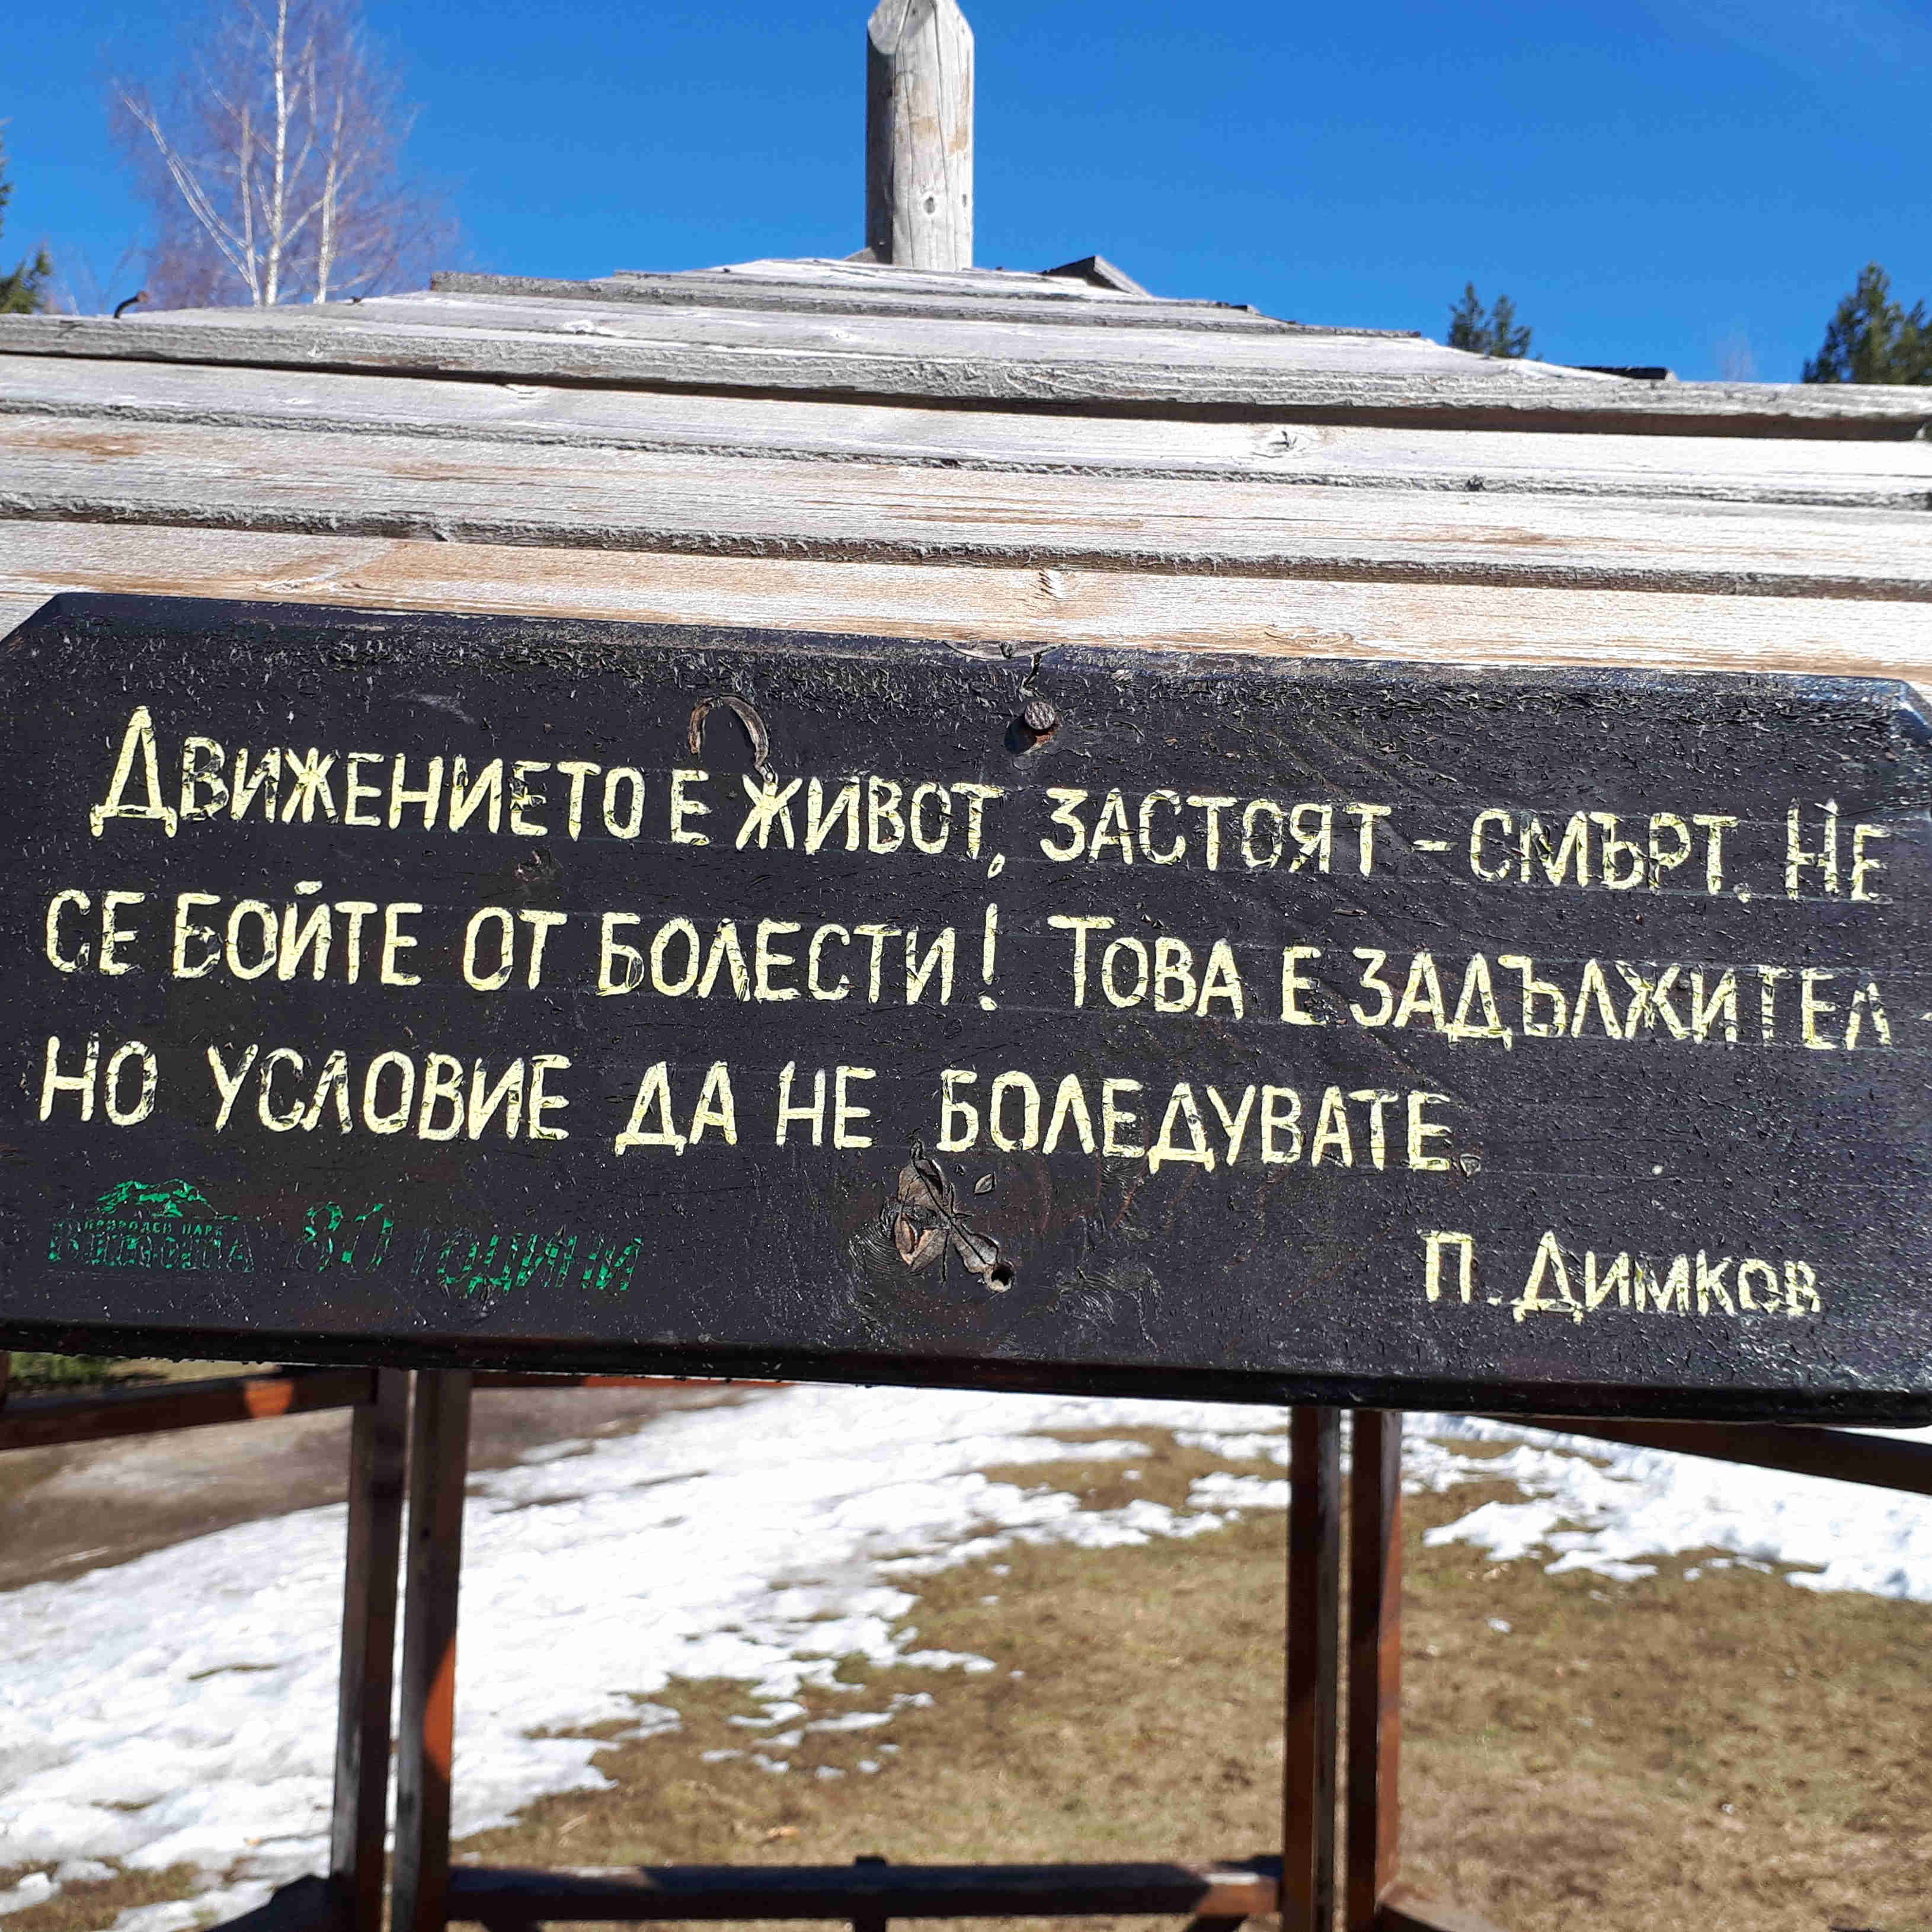 ДВИЖЕНИЕТО Е ЖИВОТ, ЗАСТОЯТ - СМЪРТ. НЕ
СЕ БОЙТЕ ОТ БОЛЕСТИ! ТОВА Е ЗАДЪЛЖИТЕЛ
НО УСЛОВИЕ ДА НЕ БОЛЕДУВАТЕ.
П. ДИМКОВ
ПРИРОДЕН ПАРК
ВИТОША 80 години